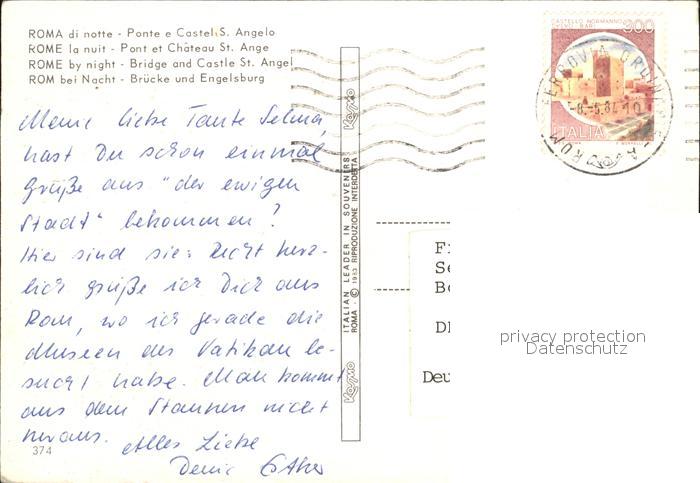 ROMA di notte - Ponte e Castel S. Angelo
ROME la nuit - Pont et Château St. Ange
ROME by night - Bridge and Castle St. Angel
ROM bei Nacht - Brücke und Engelsburg
Meine liebe Tante Selma,
hast Du schon einmal
Grüße aus "der ewigen
Stadt" bekommen?
Hier sind sie: Recht herz-
lich grüße ich Dich aus
Rom, wo ich gerade die
Museen des Vatikan be-
sucht habe. Man kommt
aus dem Staunen nicht
heraus.
Alles Liebe
Deine Esther
374
ITALIAN LEADER IN SOUVENIRS
ROMA - © 1983 RIPRODUZIONE INTERDETTA
CASTELLO NORMANNO
SVEVO BARI
300
ITALIA
FERROVIA ORDINARIE
-8.-5.84 10
ROMA
F
Se
Bo
D
Deu
privacy protection
Datenschutz